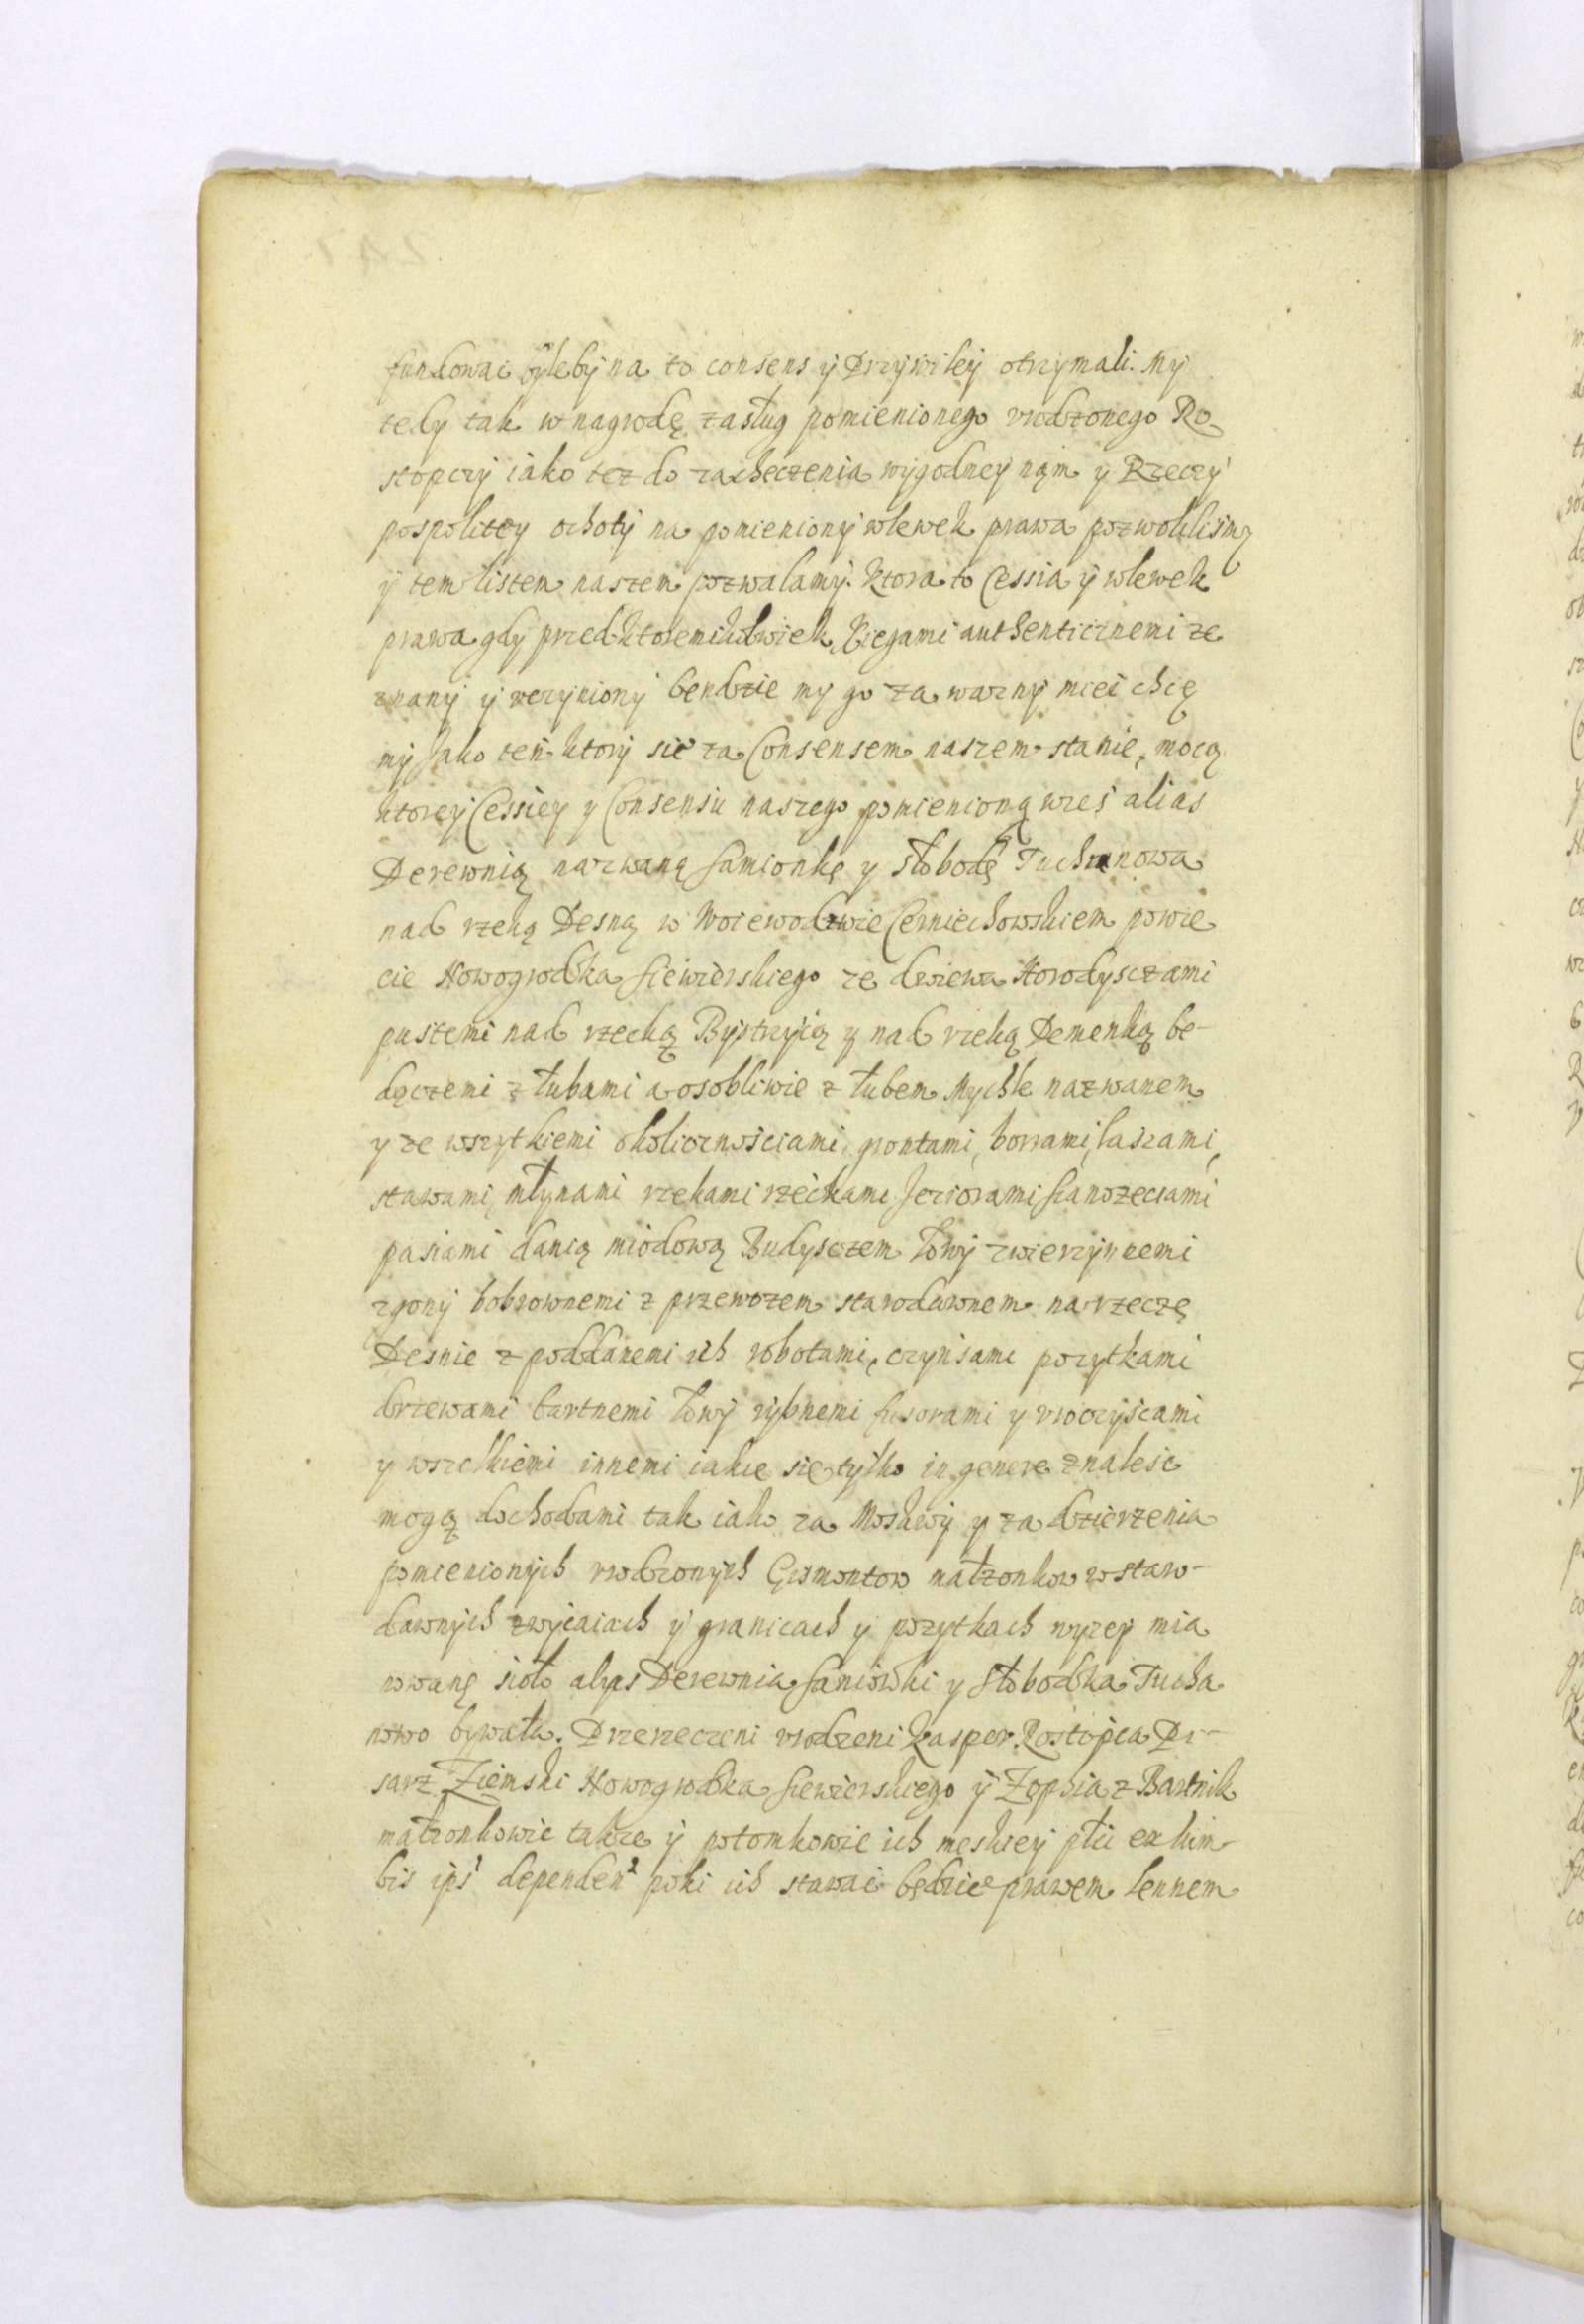 fundowac byleby na to consens y Przywiley otrzymali. My
tedy tak w nagrodę zasług pomienionego vrodzonego Ro-
stopczy iako tez do zacheczenia wygodney nąm y Rzeczy
pospolitey ochoty na pomieniony wlewek prawa pozwolilismy
y tem listem naszem pozwalamy. Ktora to Cessia y wlewek
prawa gdy przed ktoremikolwiek Xiegami authenticznemi ze
znany y vczyniony bendzie my go za wazny miec chcę
my Jako ten ktory sie za Consensem naszem stanie, mocą
ktorey Cessiey y Consensu naszego pomienioną wies alias
Derewnią nazwaną Samionkę y Słobodę Tuchanowa
nad rzeką Desną w Woiewodzwie Czerniechowskiem powie
cie Nowogrodka Siewierskiego ze dwiewa Horodysczami
pustemi nad rzeczką Bystrzycą y nad rzeką Demenką be-
dączemi z łubami a osobliwie z łubem Mychle nazwanem
y ze wszytkiemi okolicznosciami, grontami, borrami, laszami,
stawami, młynami rzekami rzeczkami Jeziorami sianozeciami
pasiami danią miodową Budysczem łowy zwierzynnemi
zgony bobrownemi z przewozem starodawnem na rzeczę
Desnie z poddanemi ich robotami, czynsami pozytkami
drzewami bartnemi łowy rybnemi y vroczyscami
y wszelkiemi innemi iakie się tylko in genere znalesc
mogą dochodami tak iako za Moskwy y za dzierzenia
pomienionych vrodzonych Gismontow małzonkow w staw-
dawnych zwyczaiach y granicach y pozytkach wyzey mia
nowanę sioło alyas Derewnia Saniowki y Słobodka Tucha
nowo bywała. Przerzeczeni vrodzeni Kasper Rostopca Pi-
sarz Ziemski Nowogrodka Siewierskiego y Zophia z Bartnik
małzonkowie takze y potomkowie ich meskiey płci ex lum-
bis ips' dependen² poki ich stawac będzie prawem lennem